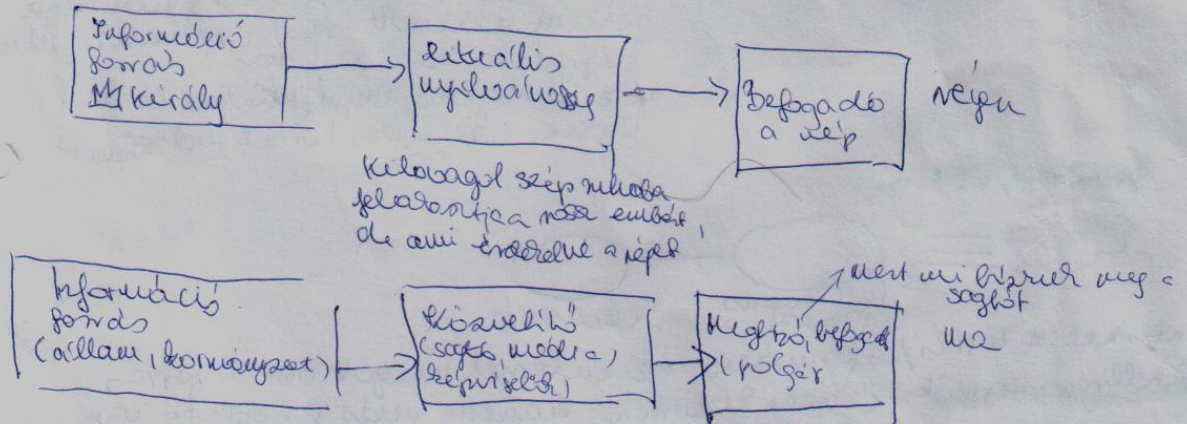 Információ
forrás
Király
Rituális
nyilvánosság
Befogadó
a nép
régen
Kilovagol szép ruhába
felakasztja a rossz embert,
de ami érdekelné a népet
Információs
forrás
(állam, kormányzat)
Közvetítő
(sajtó, média,
képviselők)
Megbízó, befogadó
(polgár
mert mi bízzuk meg a
sajtót
ma